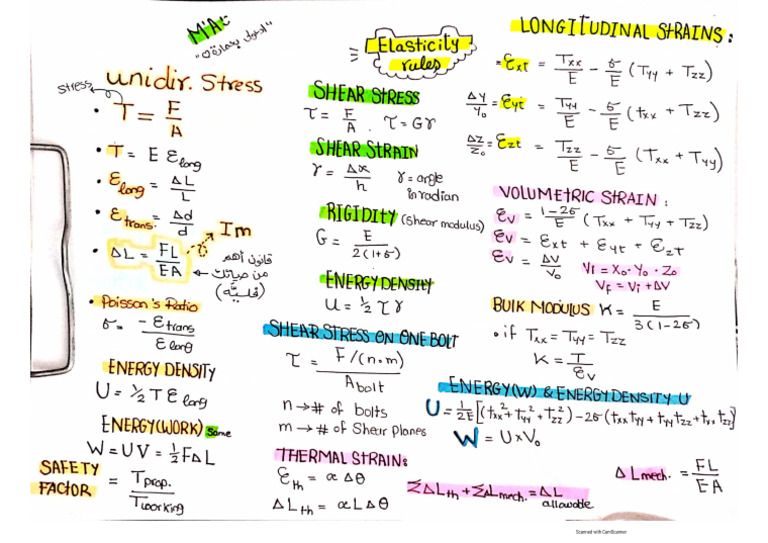 MiA:
Elasticity
rules
unidir. Stress
stress
T = F/A
• T = E ε long
• ε long = ΔL/L
• ε trans. = Δd/d
Im
• ΔL = FL/EA
قانون أهم
من حياتك
• Poisson's Ratio
σ = -ε trans / ε long
ENERGY DENSITY
U = ½ T ε long
ENERGY(WORK) same
W = UV = ½ F Δ L
SAFETY
FACTOR = T prop. / T working
SHEAR STRESS
τ = F/A . τ = Gγ
SHEAR STRAIN
γ = Δx/h γ = angle
in radian
RIGIDITY (shear modulus)
G = E / 2(1+σ)
ENERGY DENSITY
U = ½ τ γ
SHEAR STRESS ON ONE BOLT
τ = F/(n.m) / A bolt
n → # of bolts
m → # of Shear planes
THERMAL STRAIN:
ε th = α Δθ
ΔL th = α L Δθ
LONGITUDINAL STRAINS:
= εxt = Txx/E - σ/E (Tyy + Tzz)
Δy/y₀ = εyt = Tyy/E - σ/E (txx + Tzz)
ΔZ/Z₀ = εzt = Tzz/E - σ/E (Txx + Tyy)
VOLUMETRIC STRAIN:
εv = 1-2σ/E (Txx + Tyy + Tzz)
εv = εxt + εyt + εzt
εv = ΔV/V₀ Vi = X₀. Y₀ . Z₀
VF = Vi + ΔV
BULK MODULUS K = E / 3(1-2σ)
• if Txx = Tyy = Tzz
K = T/εv
ENERGY(W) & ENERGY DENSITY U
U = 1/2E [(txx² + tyy² + tzz²) - 2σ (txx tyy + tyy tzz + txx tzz)]
W = U x V₀
ΔL mech. = FL/EA
ΣΔL th + ΣΔL mech. = ΔL allowable
Scanned with CamScanner